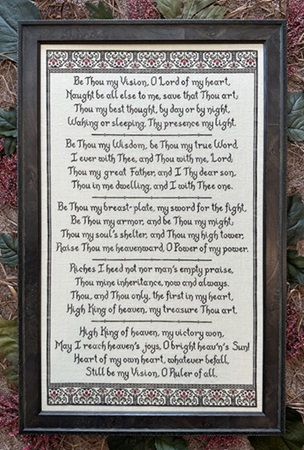 Be Thou my Vision, O Lord of my heart,
Naught be all else to me, save that Thou art;
Thou my best thought, by day or by night,
Waking or sleeping, Thy presence my light.
Be Thou my Wisdom, be Thou my true Word,
I ever with Thee, and Thou with me, Lord;
Thou my great Father, and I Thy dear son,
Thou in me dwelling, and I with Thee one.
Be Thou my breast-plate, my sword for the fight,
Be Thou my armor, and be Thou my might,
Thou my soul's shelter, and Thou my high tower,
Raise Thou me heavenward, O Power of my power.
Riches I heed not nor man's empty praise,
Thou mine inheritance, now and always.
Thou, and Thou only, the first in my heart,
High King of heaven, my treasure Thou art.
High King of heaven, my victory won,
May I reach heaven's joys, O bright heav'n's Sun!
Heart of my own heart, whatever befall,
Still be my Vision, O Ruler of all.